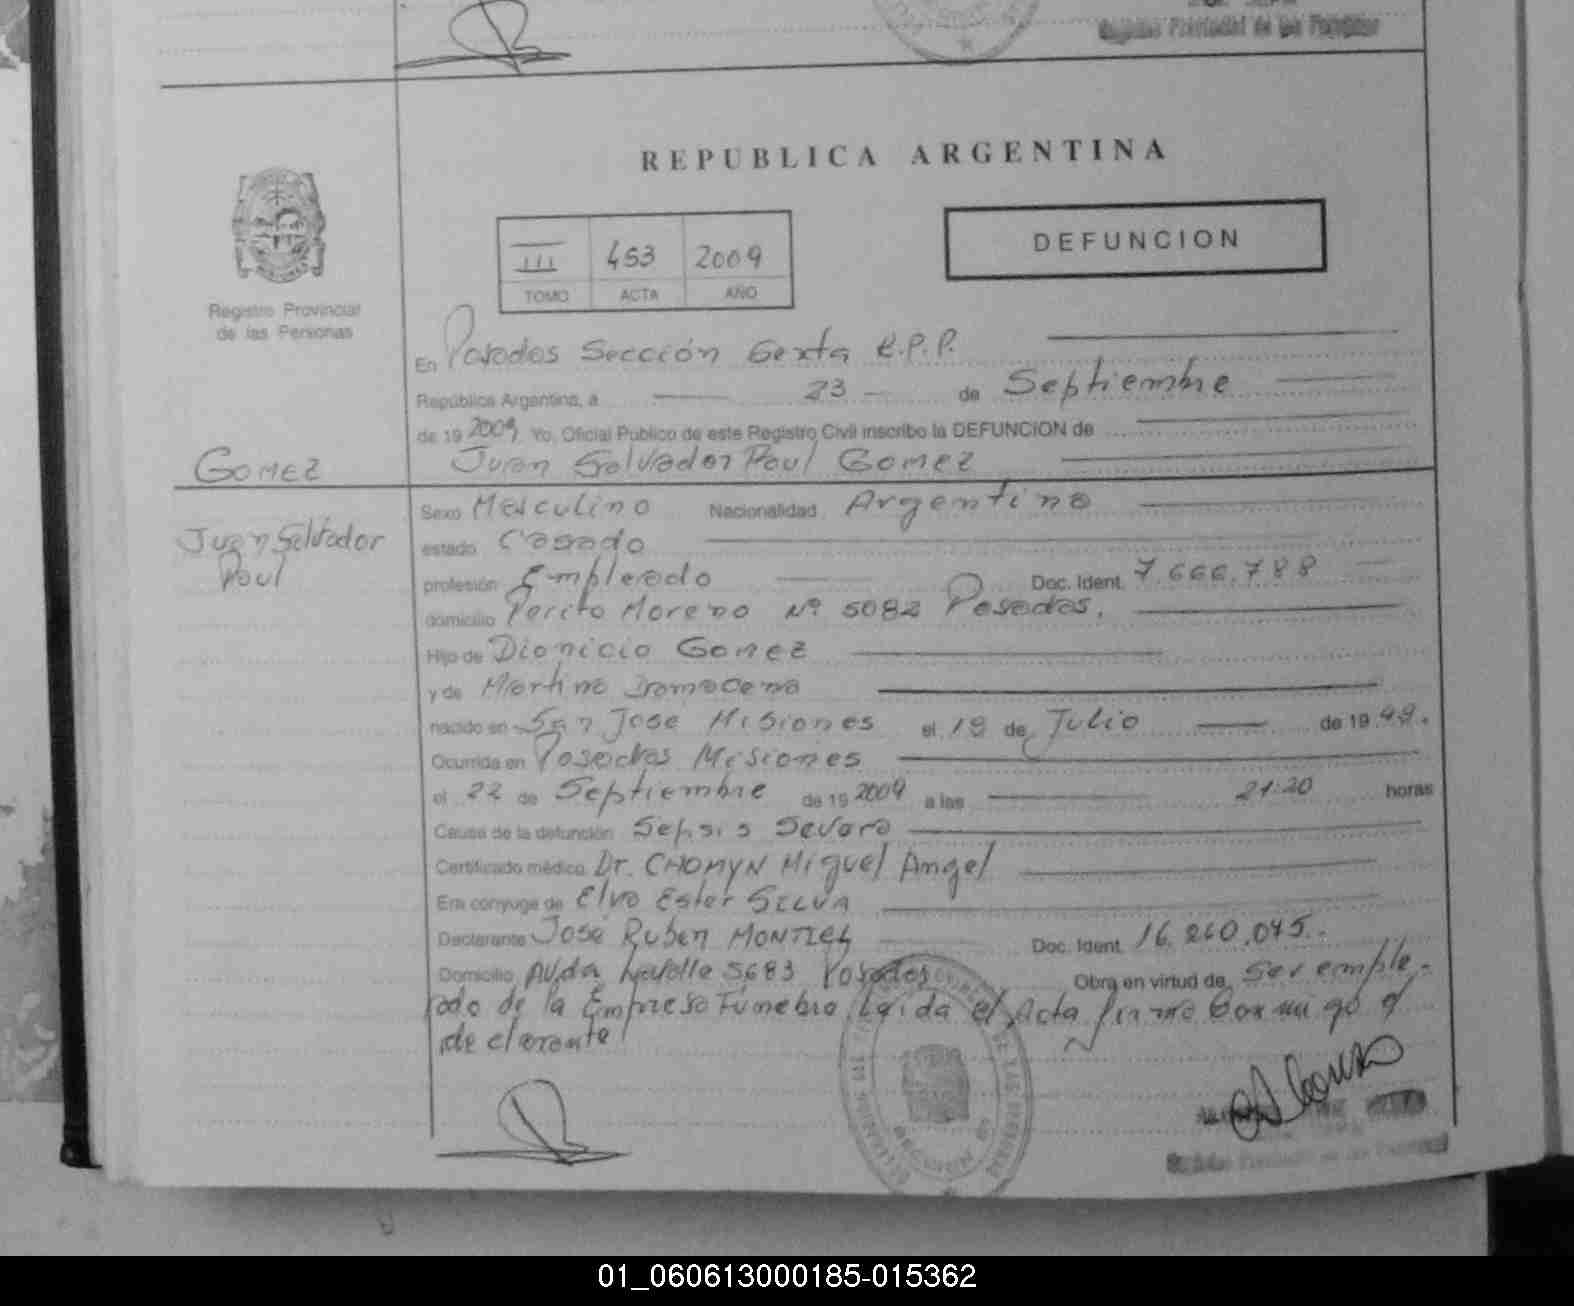 Registro Provincial de las Personas
REPUBLICA ARGENTINA
III 453 2009
TOMO ACTA AÑO
DEFUNCION
Registro Provincial
de las Personas
En Posadas Sección Sexta R.P.P.
República Argentina, a 23 de Septiembre
de 19 2009 Yo, Oficial Público de este Registro Civil inscribo la DEFUNCION de
GOMEZ
Juan Salvador Paul Gomez
Juan Salvador
Paul
Sexo Masculino Nacionalidad Argentina
estado Casado
profesión Empleado Doc. Ident. 7.666.788
domicilio Perito Moreno Nº 5082 Posadas.
Hijo de Dionicio Gomez
y de Martina Damacena
nacido en San Jose Misiones el 19 de Julio de 19 49.
Ocurrida en Posadas Misiones
el 22 de Septiembre de 19 2009 a las 21:20 horas
Causa de la defunción Sepsis Severa
Certificado médico Dr. CHOMYN Miguel Angel
Era conyuge de Elva Ester SILVA
Declarante José Ruben MONTIEL Doc. Ident. 16.260.045.
Domicilio Avda Lavalle 5683 Posadas Obra en virtud de Ser emple-
ado de la Empresa Funebre Leida el Acta firma conmigo el
declarante
01_060613000185-015362